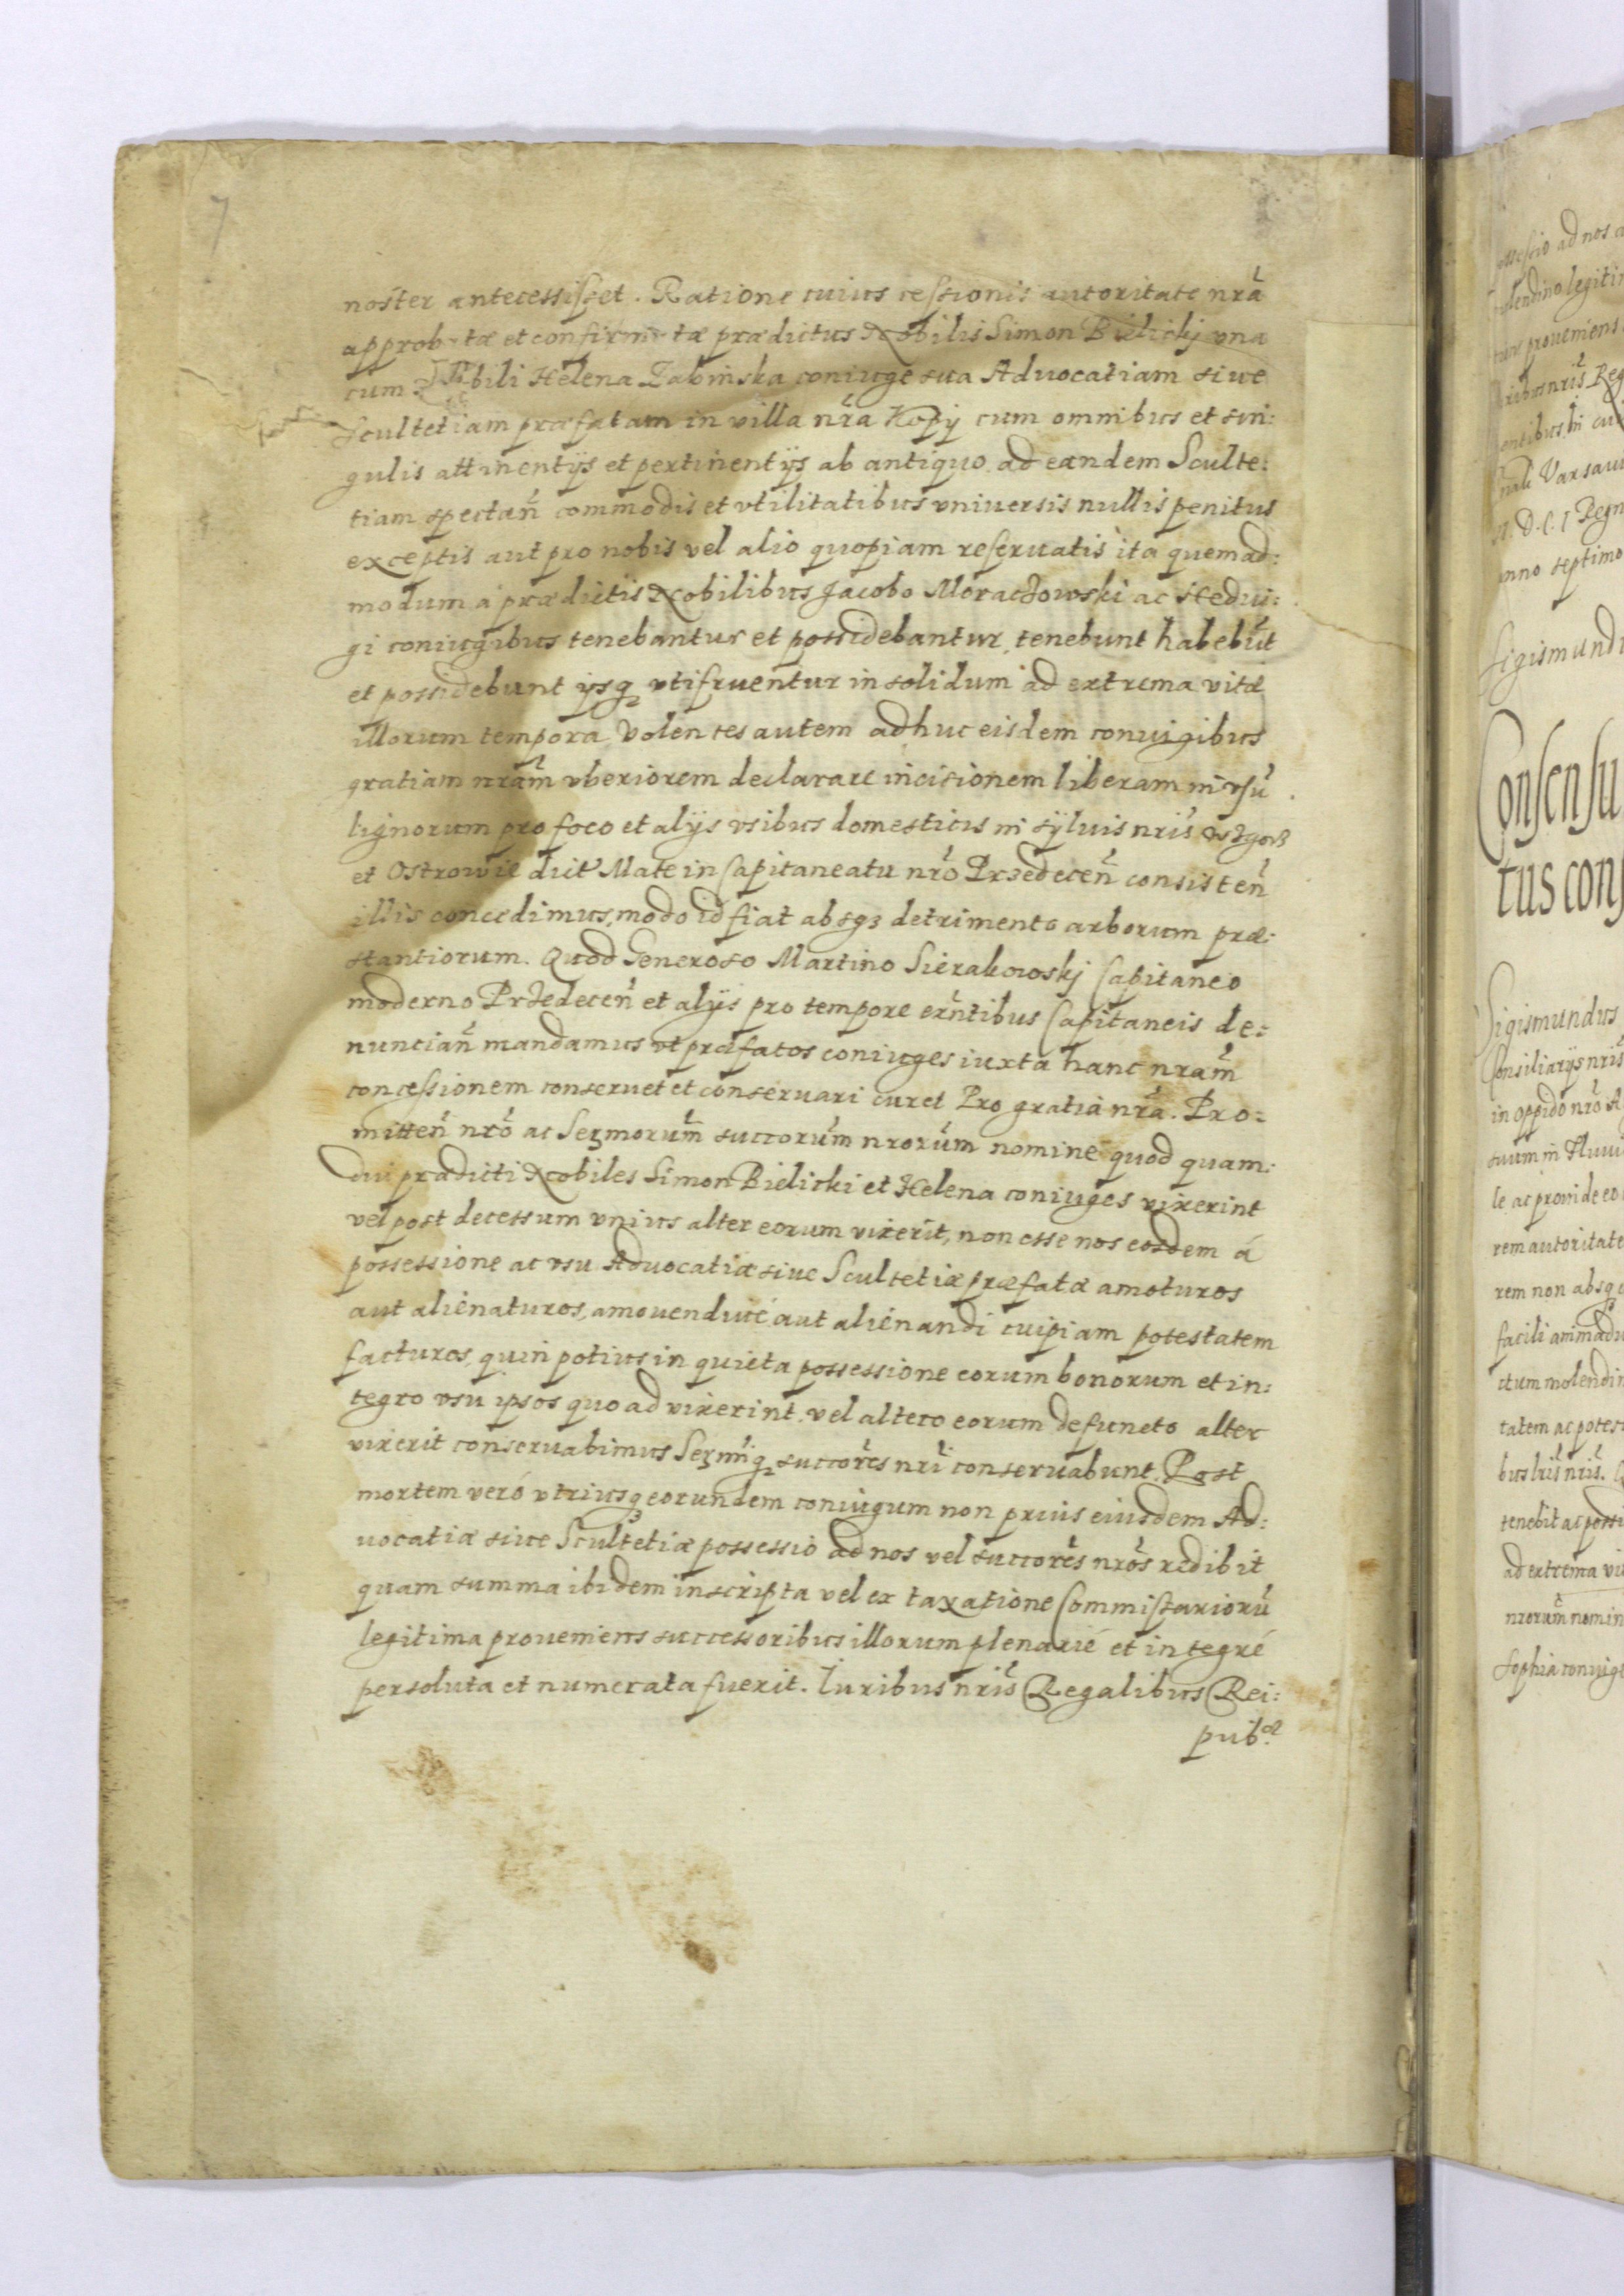 7
noster antecessisset. Ratione cuius cessionis autoritate nrã
approbatæ et confirmatæ prædictus Nobilis Simon Bielickj vna
cum Nobili Helena Zabinska coniuge sua Aduocatiam siue
Scultetiam præfatam in villa nrã Kopÿ cum omnibus et sin:
gulis attinentijs et pertinentijs ab antiquo ad eandem Sculte:
tiam spectan̄ commodis et vtilitatibus vniuersis nullis penitus
exceptis aut pro nobis vel alio quopiam reseruatis ita quemad:
modum à prædictis Nobilibus Jacobo Moraczowski ac Hedui:
gi coniugibus tenebantur et possidebantur, tenebunt habebūt
et possidebunt ijsq vtifruentur in solidum ad extrema vitæ
illorum tempora. Volentes autem adhuc eisdem coniugibus
gratiam nrãm vberiorem declarare incisionem liberam in vsū
lignorum pro foco et alijs vsibus domesticis in syluis nrĩs
et Ostrowie dict Mate in Capitaneatu nrõ Przedecen̄ consisten̄
illis concedimus, modo id fiat absq3 detrimento arborum præ:
stantiorum. Quod Generoso Martino Sierakowskj Capitaneo
moderno Przedecen̄ et alijs pro tempore exñtibus Capitaneis de:
nuncian̄ mandamus vt præfatos coniuges iuxta hanc nrãm
concessionem conseruet et conseruari curet Pro gratia nrã. Pro:
mitten̄ nrõ ac Sermorum̃ succorum̃ nrorum̃ nomine quod quam:
diu prædicti Nobiles Simon Bielicki et Helena coniuges vixerint
vel post decessum vnius alter eorum vixerit, non esse nos eosdem á
possessione ac vsu Aduocatiæ siue Scultetiæ præfatæ amoturos
aut alienaturos, amouendiué aut alienandi cuipiam potestatem
facturos, quin potius in quieta possessione eorum bonorum et in:
tegro vsu ipsos quo ad vixerint, vel altero eorum defuncto alter
vixerit conseruabimus Sermĩq succorẽs nrĩ conseruabunt. Post
mortem veró vtriusq3 eorundem coniugum non prius eiusdem Ad:
uocatiæ siue Scultetiæ possessio ad nos vel succorẽs nrõs redibit
quam summa ibidem inscripta vel ex taxatione Commissariorū
legitima proueniens successoribus illorum plenarié et integré
persoluta et numerata fuerit. Iuribus nrĩs Regalibus Rei:
pubcæ
ad nos
legitim
proueniens
nrĩs Reg
Varsaui
D. C. I Regn
anno septimo
Sigismundu
Consensu
tus cons
Sigismundus
Consiliarijs nrĩs
in oppido nrõ
suum in Fluui
le ac proinde eo
rem autoritate
rem non absq
facili animadu
itum molendin
tatem ac potest
bus lrĩs nrĩs.
tenebit ac possi
ad extrema vit
nrorum̃ nomin
Sophia coniuge